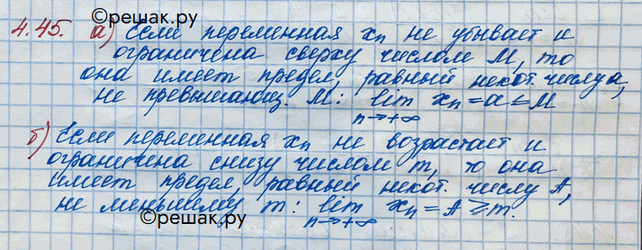 ©решак.ру
4.45. а) Если переменная xₙ не убывает и
ограничена сверху числом М, то
она имеет предел, равный некот. числу а,
не превышающ. М: lim xₙ = a ≤ M
n→+∞
б) Если переменная xₙ не возрастает и
ограничена снизу числом m, то она
имеет предел, равный некот. числу А,
не меньшему m: lim xₙ = A ≥ m.
©решак.ру n→+∞